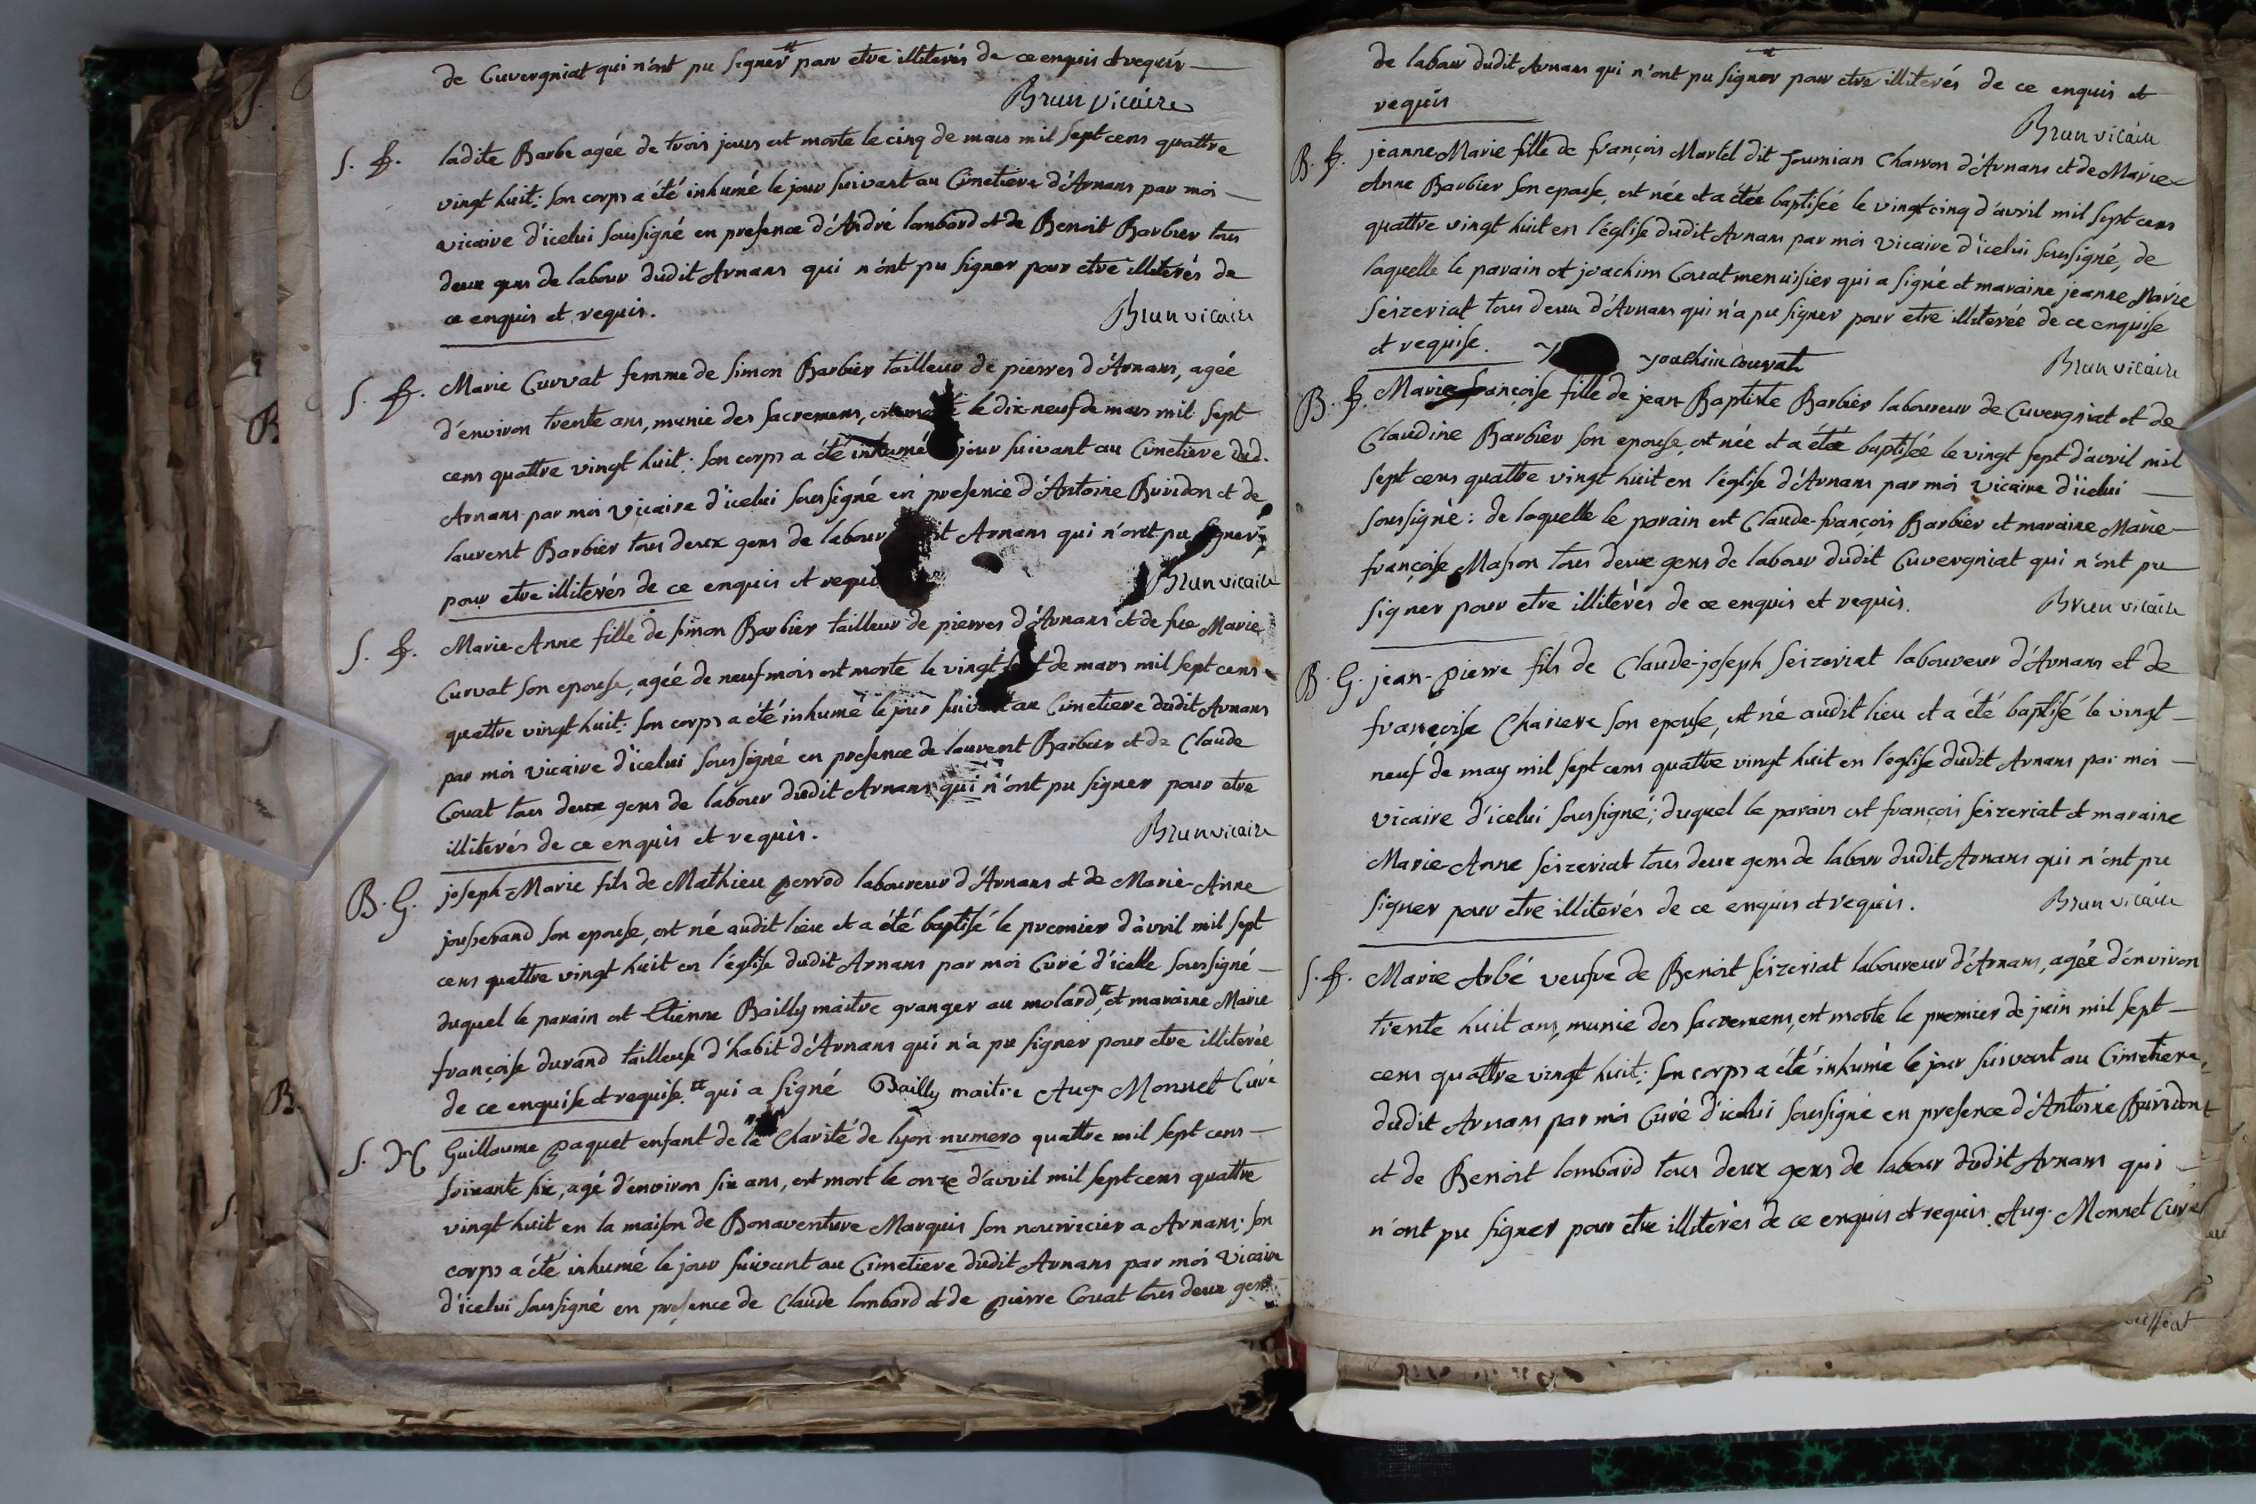 de Cuvergniat qui n'ont pu signer pour etre illiterés de ce enquis et requis
Brun vicaire
S. f. ladite Barbe agée de trois jours est morte le cinq de mars mil sept cens quattre
vingt huit: son corps a été inhumé le jour suivant au Cimetiere d'Arnans par moi
vicaire d'icelui soussigné en presence d'André lombard et de Benoit Barbier tous
deux gens de labour dudit Arnans qui n'ont pu signer pour etre illiterés de
ce enquis et requis. Brun vicaire
S. f. Marie Curvat femme de simon Barbier tailleur de pierres d'Arnans, agée
d'environ trente ans, munie des sacremens, est le dix neuf de mars mil sept
cens quattre vingt huit: son corps a été inhumé jour suivant au Cimetiere dud.
Arnans par moi vicaire d'icelui soussigné en presence d'Antoine Buridon et de
laurent Barbier tous deux gens de labour Arnans qui n'ont pu signer
pour etre illiterés de ce enquis et requis Brun vicaire
S. f. Marie-Anne fille de simon Barbier tailleur de pierres d'Arnans et de fue Marie
Curvat son epouse, agée de neuf mois est morte le vingt de mars mil sept cens
quattre vingt huit: son corps a été inhumé le jour suivant au Cimetiere dudit Arnans
par moi vicaire d'icelui soussigné en presence de laurent Barbier et de Claude
Couat tous deux gens de labour dudit Arnans qui n'ont pu signer pour etre
illiterés de ce enquis et requis. Brun vicaire
B. G. joseph-Marie fils de Mathieu perrod laboureur d'Arnans et de Marie-Anne
jousserand son epouse, est né audit lieu et a été baptisé le premier d'avril mil sept
cens quattre vingt huit en l'église dudit Arnans par moi Curé d'icelle soussigné
duquel le parain est Etienne Bailly maitre granger au molard, et maraine Marie
françoise durand tailleuse d'habit d'Arnans qui n'a pu signer pour etre illiterée
de ce enquise et requise. qui a signé Bailly maitre Aug. Monnet Curé
S. Guillaume paquet enfant de la Charité de lyon numero quattre mil sept cens
soixante six, agé d'environ six ans, est mort le onze d'avril mil sept cens quattre
vingt huit en la maison de Bonaventure Marquis son nourricier a Arnans; son
corps a été inhumé le jour suivant au Cimetiere dudit Arnans par moi vicaire
d'icelui soussigné en presence de Claude lombard et de pierre Couat tous deux gens
de labour dudit Arnans qui n'ont pu signer pour etre illiterés de ce enquis et
requis Brun vicaire
B. f. jeanne Marie fille de françois Martel dit Journian Charron d'Arnans et de Marie
Anne Barbier son epouse, est née et a étée baptisée le vingt cinq d'avril mil sept cens
quattre vingt huit en l'église dudit Arnans par moi vicaire d'icelui soussigné, de
laquelle le parain est joachim Couat menuisier qui a signé et maraine jeanne Marie
Seizeriat tous deux d'Arnans qui n'a pu signer pour etre illiterée de ce enquise
et requise. yoachim couvat Brun vicaire
B. f. Marie françoise fille de jean Baptiste Barbier laboureur de Cuvergniat et de
Claudine Barbier son epouse, est née et a étée baptisée le vingt sept d'avril mil
sept cens quattre vingt huit en l'église d'Arnans par moi vicaire d'icelui
soussigné: de laquelle le parain est Claude-françois Barbier et maraine Marie
françoise Masson tous deux gens de labour dudit Cuvergniat qui n'ont pu
signer pour etre illiterés de ce enquis et requis. Brun vicaire
B. G. jean-pierre fils de Claude-joseph Seizeriat laboureur d'Arnans et de
françoise Chariere son epouse, est né audit lieu et a été baptisé le vingt
neuf de may mil sept cens quattre vingt huit en l'église dudit Arnans par moi
vicaire d'icelui soussigné; duquel le parain est françois Seizeriat et maraine
Marie-Anne Seizeriat tous deux gens de labour dudit Arnans qui n'ont pu
signer pour etre illiterés de ce enquis et requis. Brun vicaire
S. f. Marie Arbé veufve de Benoit Seizeriat laboureur d'Arnans, agée d'environ
trente huit ans, munie des sacremens, est morte le premier de juin mil sept
cens quattre vingt huit; son corps a été inhumé le jour suivant au Cimetiere
dudit Arnans par moi Curé d'icelui soussigné en presence d'Antoine Buridon
et de Benoit lombard tous deux gens de labour dudit Arnans qui
n'ont pu signer pour etre illiterés de ce enquis et requis. Aug. Monnet Curé